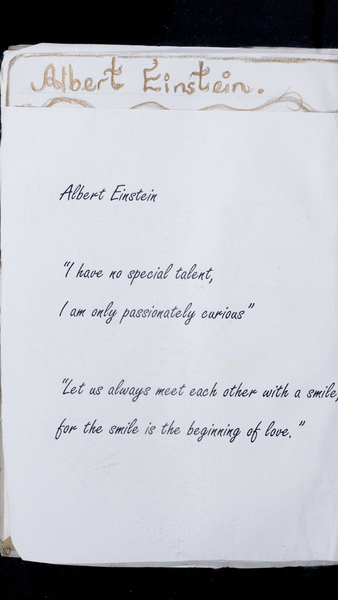 Albert Einstein.
Albert Einstein
"I have no special talent,
I am only passionately curious"
"Let us always meet each other with a smile,
for the smile is the beginning of love."